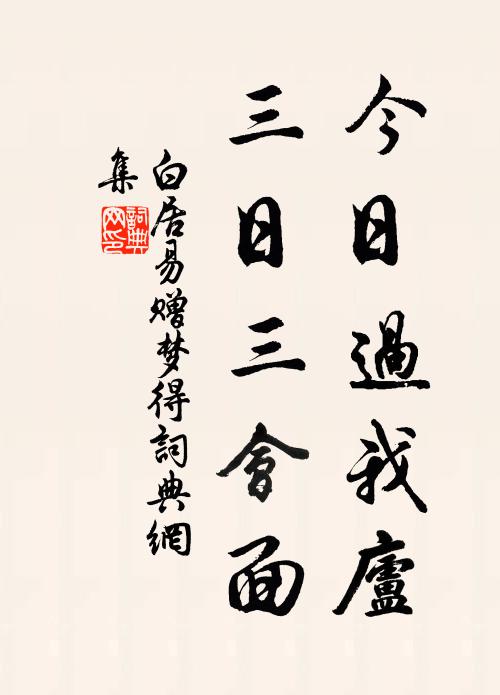 今日過我廬
三日三會面
白居易赠梦得詞典網
集
詞典网印